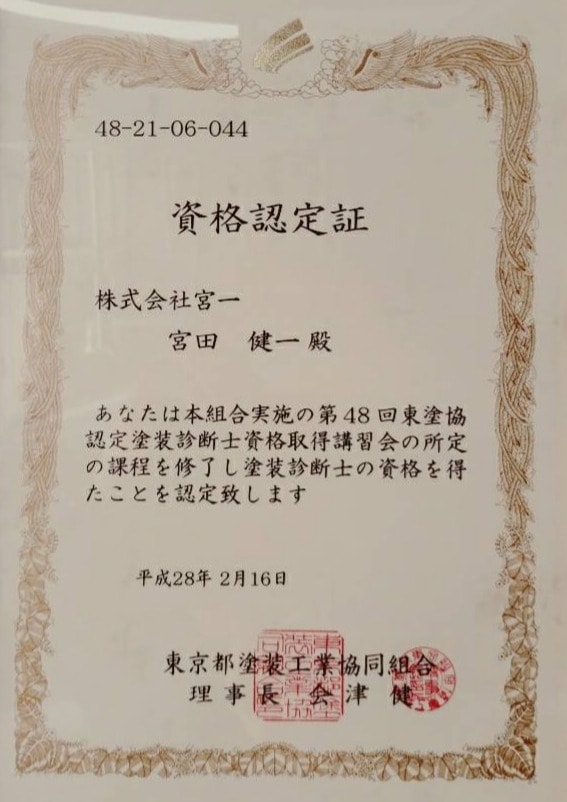 48-21-06-044
資格認定証
株式会社宮一
宮田 健一殿
あなたは本組合実施の第48回東塗協
認定塗装診断士資格取得講習会の所定
の課程を修了し塗装診断士の資格を得
たことを認定致します
平成28年 2月16日
東京都塗装工業協同組合
理事長 会津 健